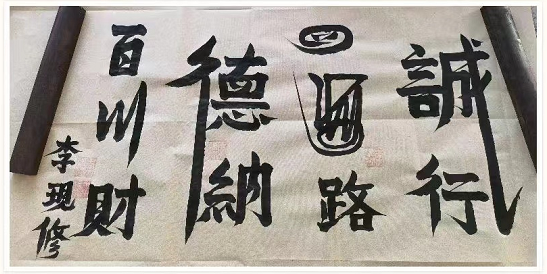 誠行
四路
德納
百川財
李現修